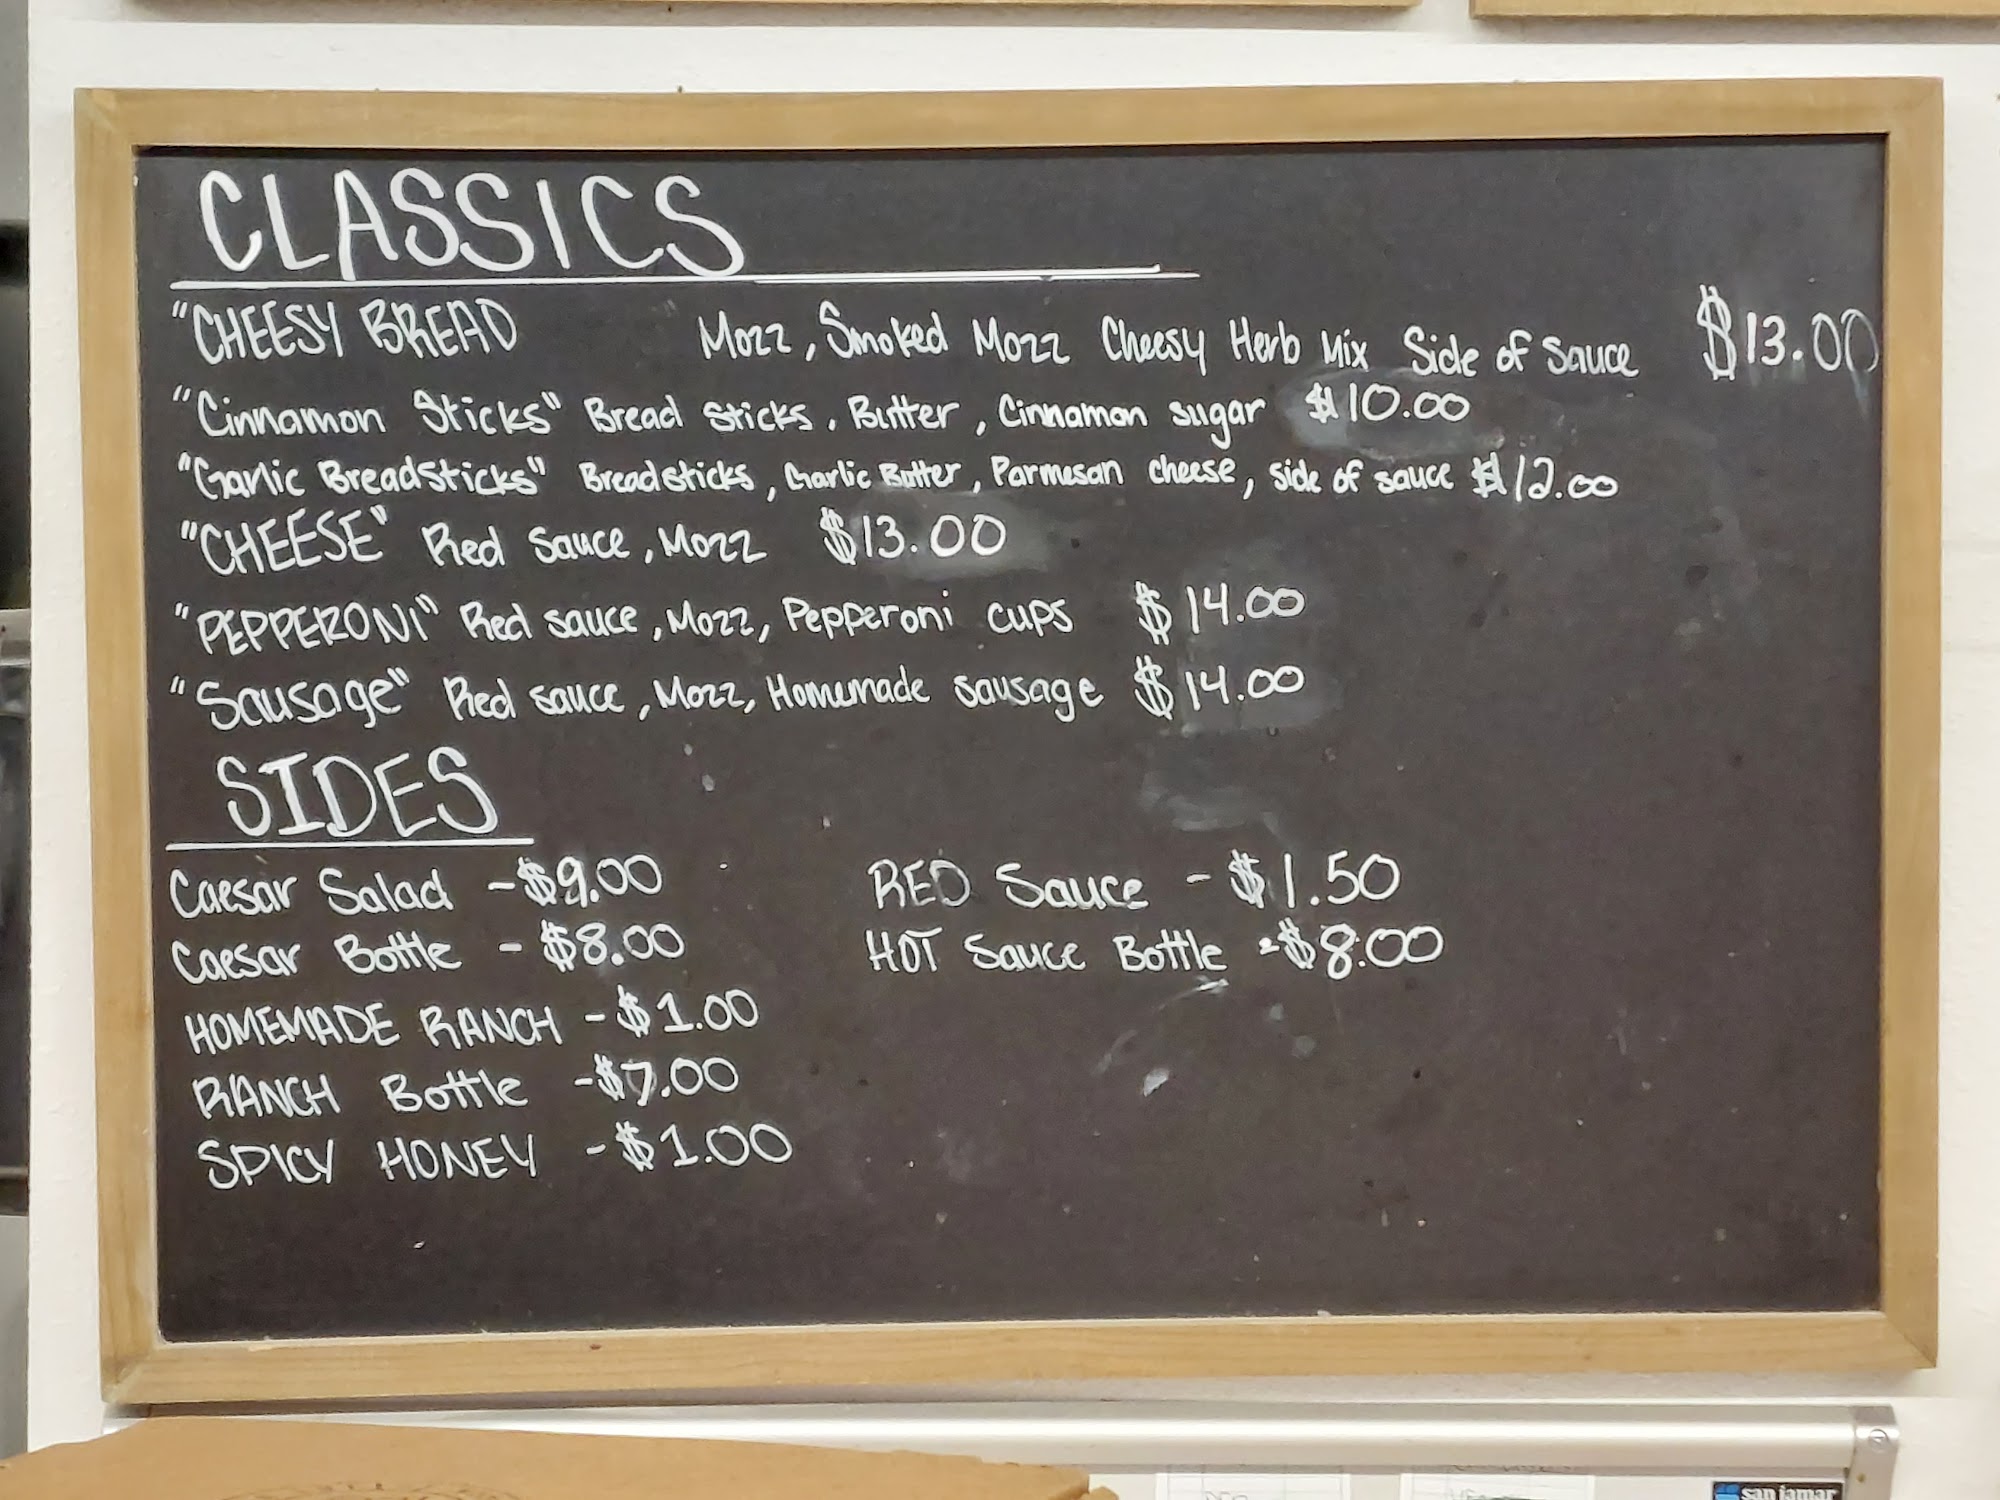 CLASSICS
"CHEESY BREAD Mozz, Smoked Mozz Cheesy Herb Mix Side of Sauce $13.00
"Cinnamon Sticks" Bread Sticks, Butter, Cinnamon sugar $10.00
"Garlic Breadsticks" Breadsticks, Garlic Butter, Parmesan cheese, side of sauce $12.00
"CHEESE" Red Sauce, Mozz $13.00
"PEPPERONI" Red sauce, Mozz, Pepperoni cups $14.00
"Sausage" Red sauce, Mozz, Homemade sausage $14.00
SIDES
Caesar Salad - $9.00 RED Sauce - $1.50
Caesar Bottle - $8.00 HOT Sauce Bottle - $8.00
HOMEMADE RANCH - $1.00
RANCH Bottle - $7.00
SPICY HONEY - $1.00
san jamar